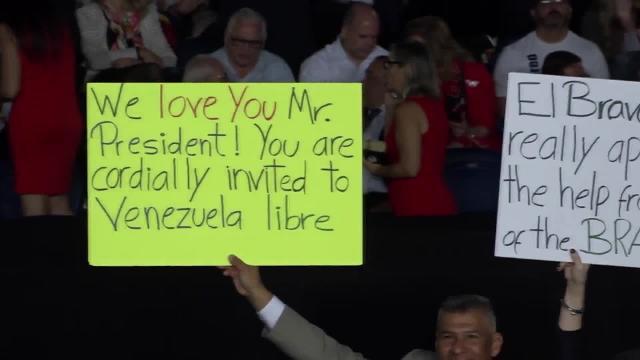 We love You Mr.
President! You are
cordially invited to
Venezuela libre
El
really
the help
of the